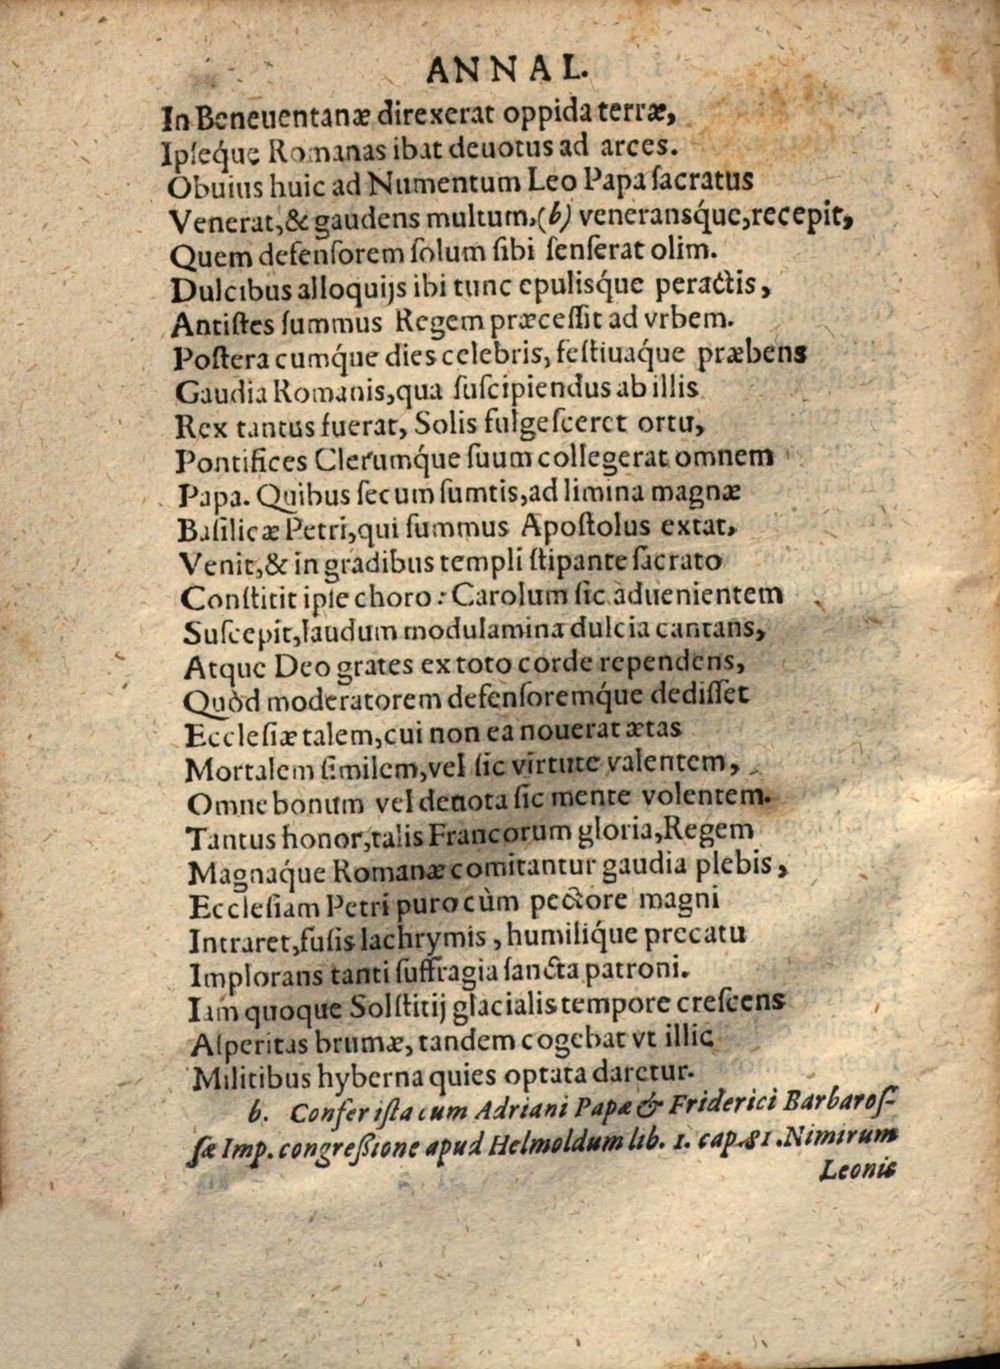 ANNAL.
In Beneuentanæ direxerat oppida terræ,
Ipſeq́ue Romanas ibat deuotus ad arces.
Obuius huic ad Numentum Leo Papa ſacratus
Venerat,& gaudens multum,(b) veneransq́ue,recepit,
Quem defenſorem ſolum ſibi ſenſerat olim.
Dulcibus alloquijs ibi tunc epulisq́ue peractis,
Antiſtes ſummus Regem præceſſit ad vrbem.
Poſtera cumq́ue dies celebris, feſtiuaq́ue præbens
Gaudia Romanis,qua ſuſcipiendus ab illis
Rex tantus fuerat, Solis fulgeſceret ortu,
Pontifices Clerumq́ue ſuum collegerat omnem
Papa. Quibus ſecum ſumtis,ad limina magnæ
Baſilicæ Petri,qui ſummus Apoſtolus extat,
Venit,& in gradibus templi ſtipante ſacrato
Conſtitit ipſe choro: Carolum ſic aduenientem
Suſcepit,laudum modulamina dulcia cantans,
Atque Deo grates ex toto corde rependens,
Quòd moderatorem defenſoremq́ue dediſſet
Eccleſiæ talem,cui non ea nouerat ætas
Mortalem ſimilem,vel ſic virtute valentem,
Omne bonum vel deuota ſic mente volentem.
Tantus honor,talis Francorum gloria,Regem
Magnaq́ue Romanæ comitantur gaudia plebis,
Eccleſiam Petri puro cùm pectore magni
Intraret,fuſis lachrymis, humiliq́ue precatu
Implorans tanti ſuffragia ſancta patroni.
Iam quoque Solſtitij glacialis tempore creſcens
Aſperitas brumæ, tandem cogebat vt illic
Militibus hyberna quies optata daretur.
b. Confer iſta cum Adriani Papæ & Friderici Barbaroſ-
ſæ Imp. congreßione apud Helmoldum lib. 1. cap. 81. Nimirum
Leonis